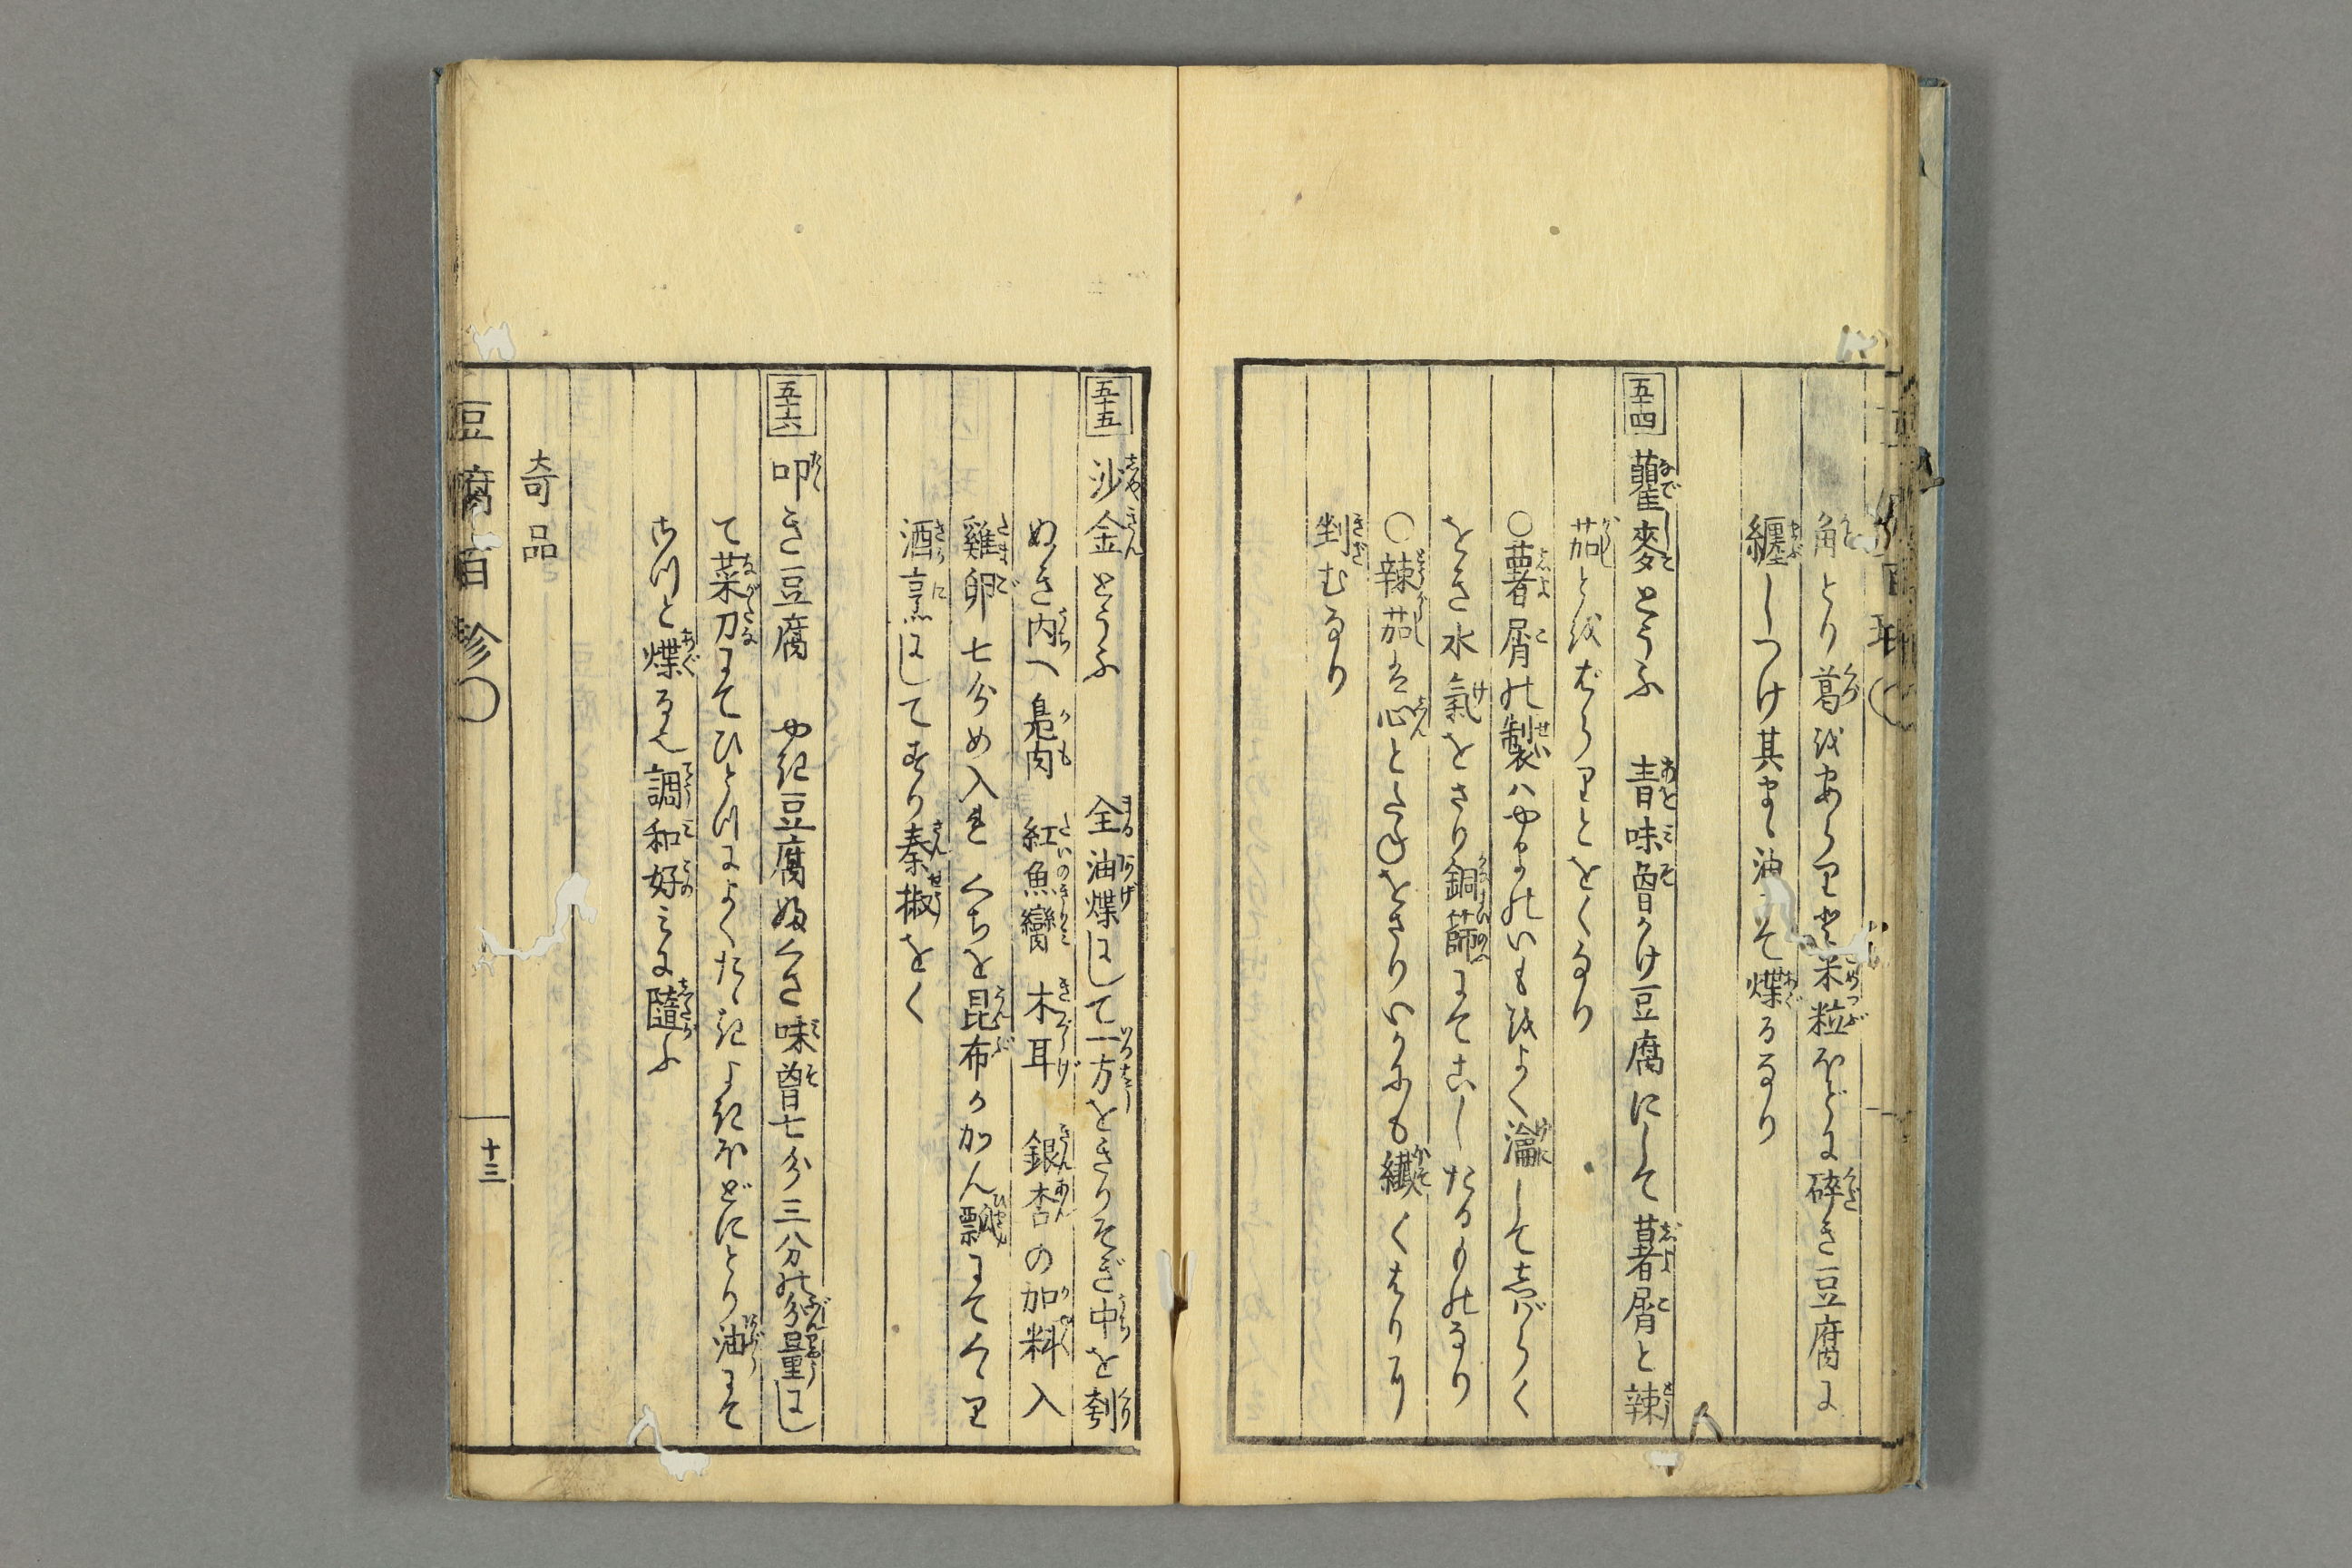 角とり葛をあらりと米粒ほどに砕き豆腐に
纏しつけ其まゝ油にて煠るなり
五十四 藋麥とうふ 青味噌かけ豆腐にして薯屑と辣
茄とをばらりとをくなり
○薯屑の製ハやまのいもをよく瀹してしばらく
をき水氣をさり銅篩にてこしたるものなり
○辣茄は心とたねをさりいかにも纎くはり
剉むなり
五十五 沙金とうふ 全油煠にして一方をきりそぎ中を刳
ぬき内へ鳧肉 紅魚臠 木耳 銀杏の加料入
雞卵七分め入れくちを昆布かかん瓢にてくゝり
酒烹にしてすり秦椒をく
五十六 叩き豆腐 やき豆腐ふくさ味噌七分三分の分量にし
て菜刀にてひとつによくたゝきよきほどにとり油にて
さつと煠る也調和好みに隨ふ
奇品
豆腐百珍○ 十三